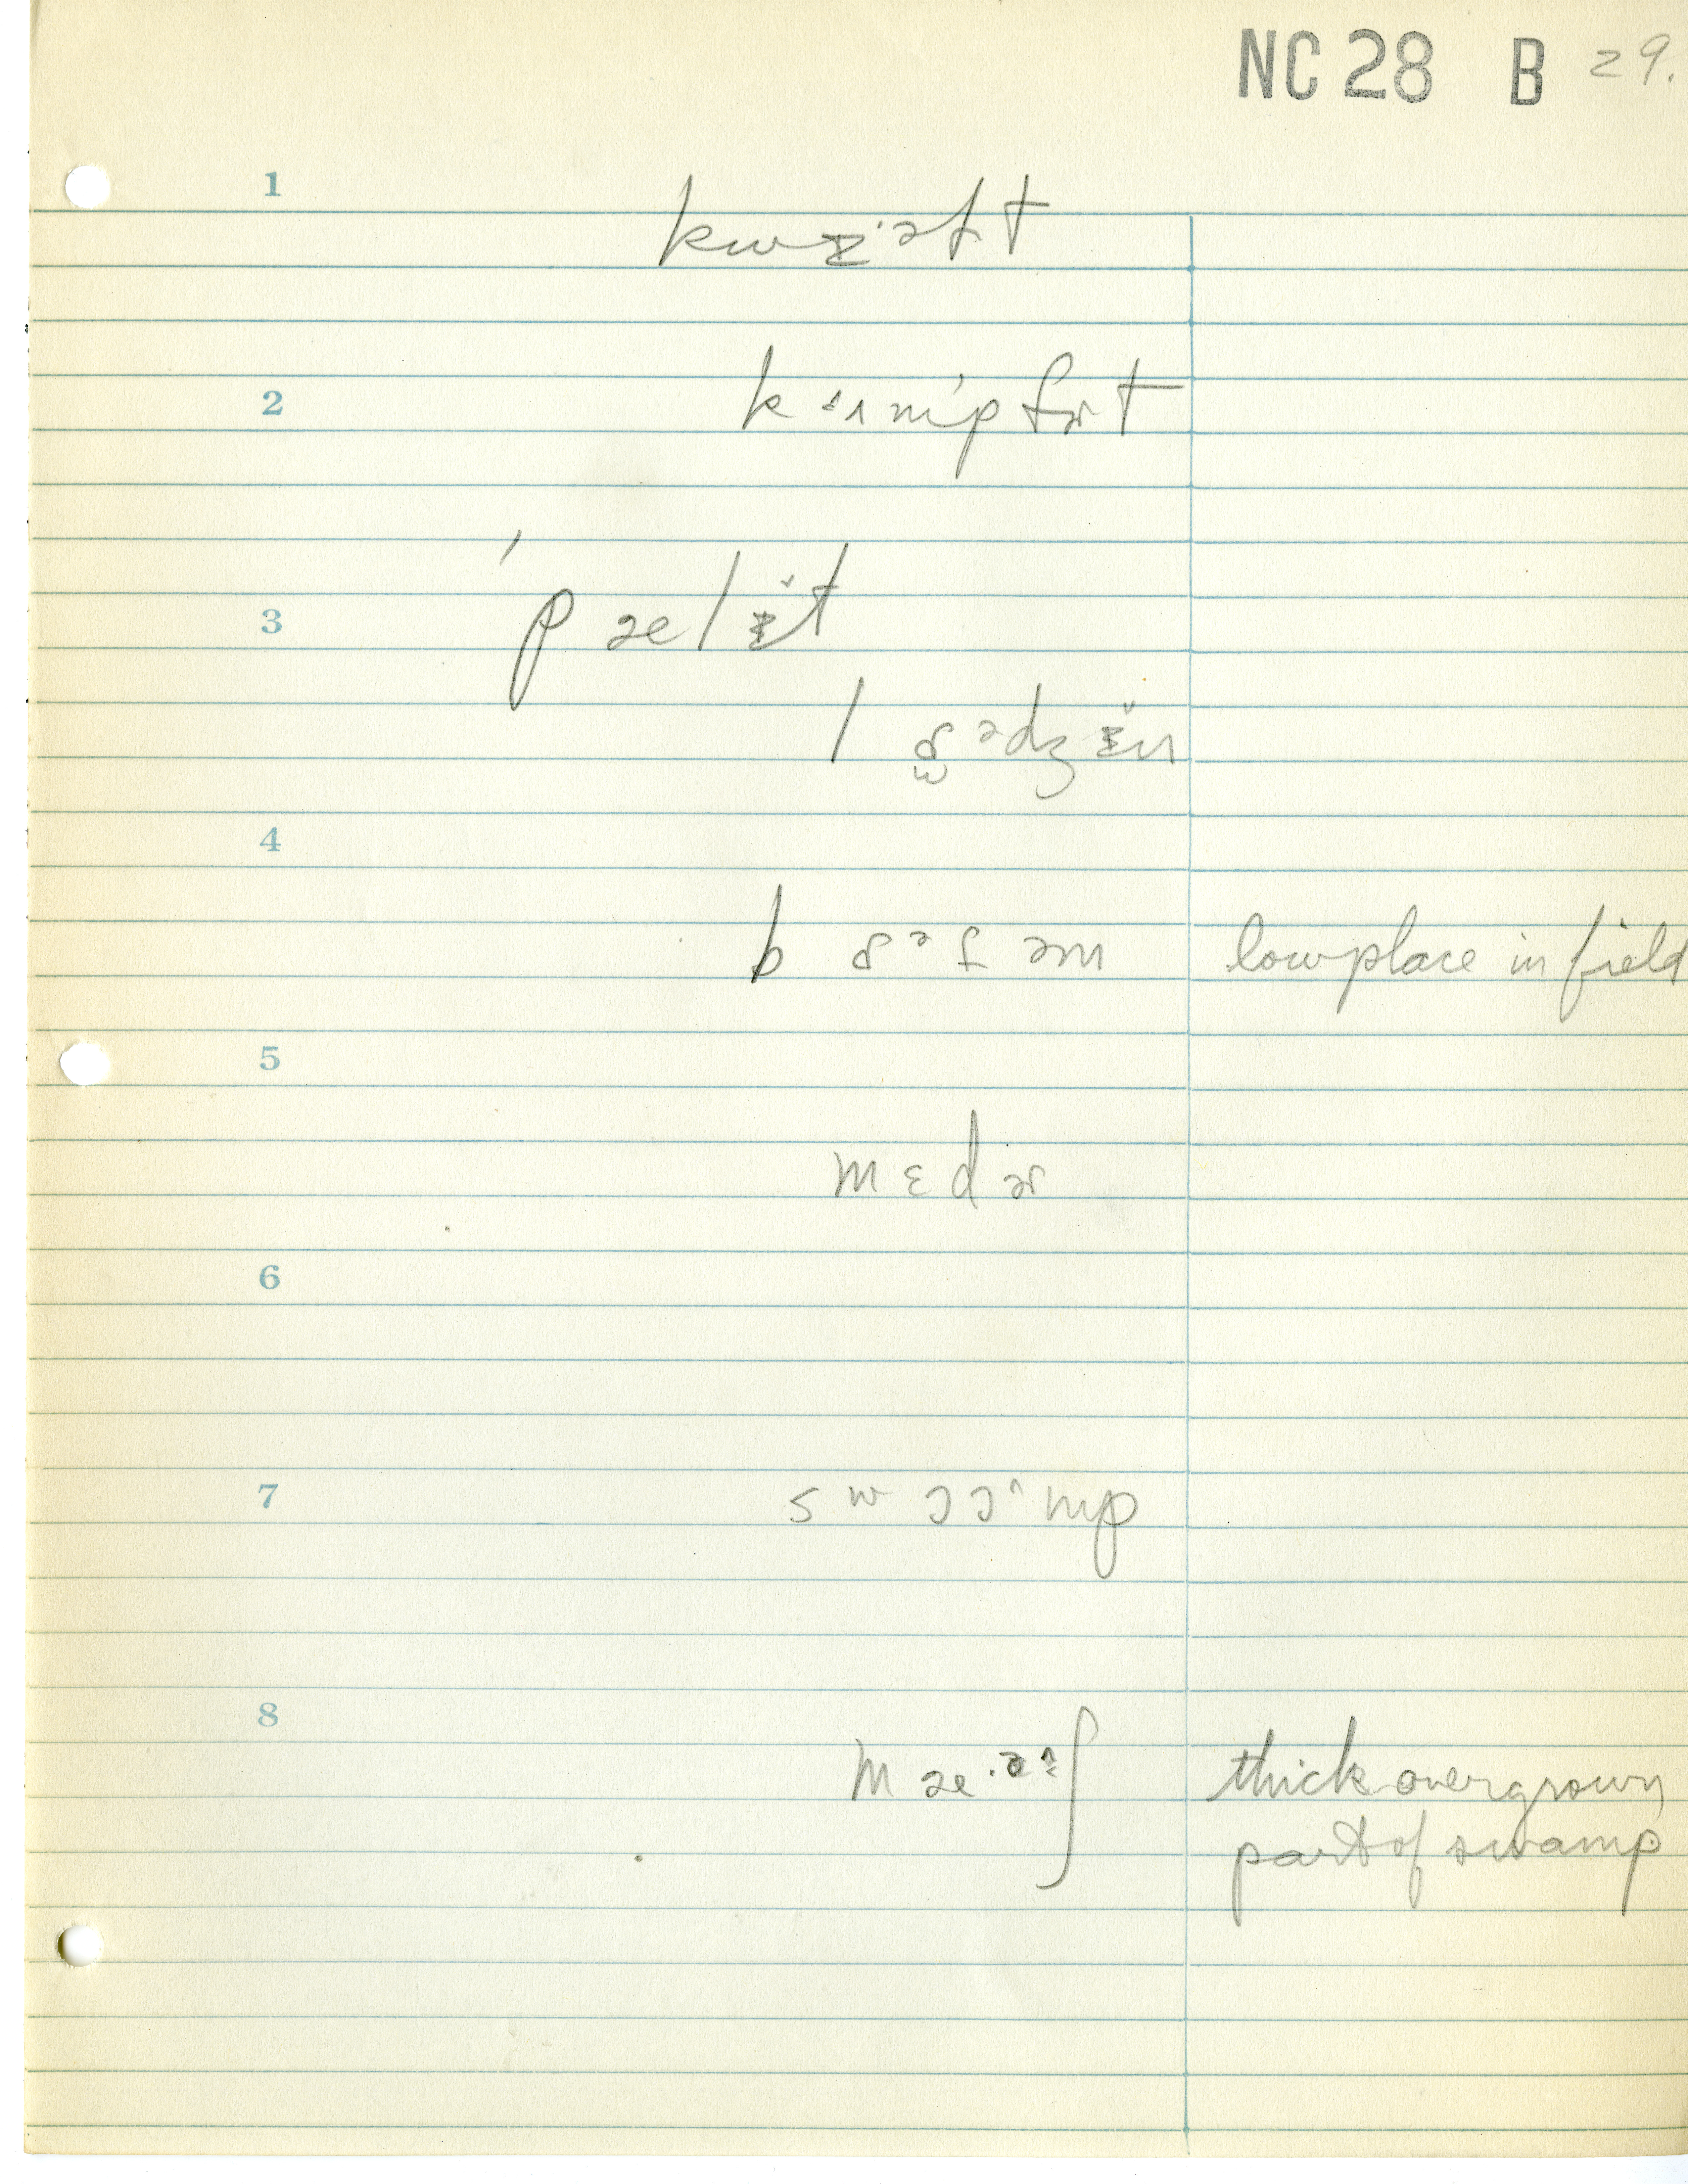 NC 28 B 29.
1
kwɪ·əɫt
2
kɜɪmpfɚt
3
ˈpælɪ̆t
lɑədʒɪ̆n
4
bɑəɫəm lowplace in field
5
mɛdɚ
6
7
swɔɔmp
8
mæ·ə⁝ʃ thick overgrown
part of swamp